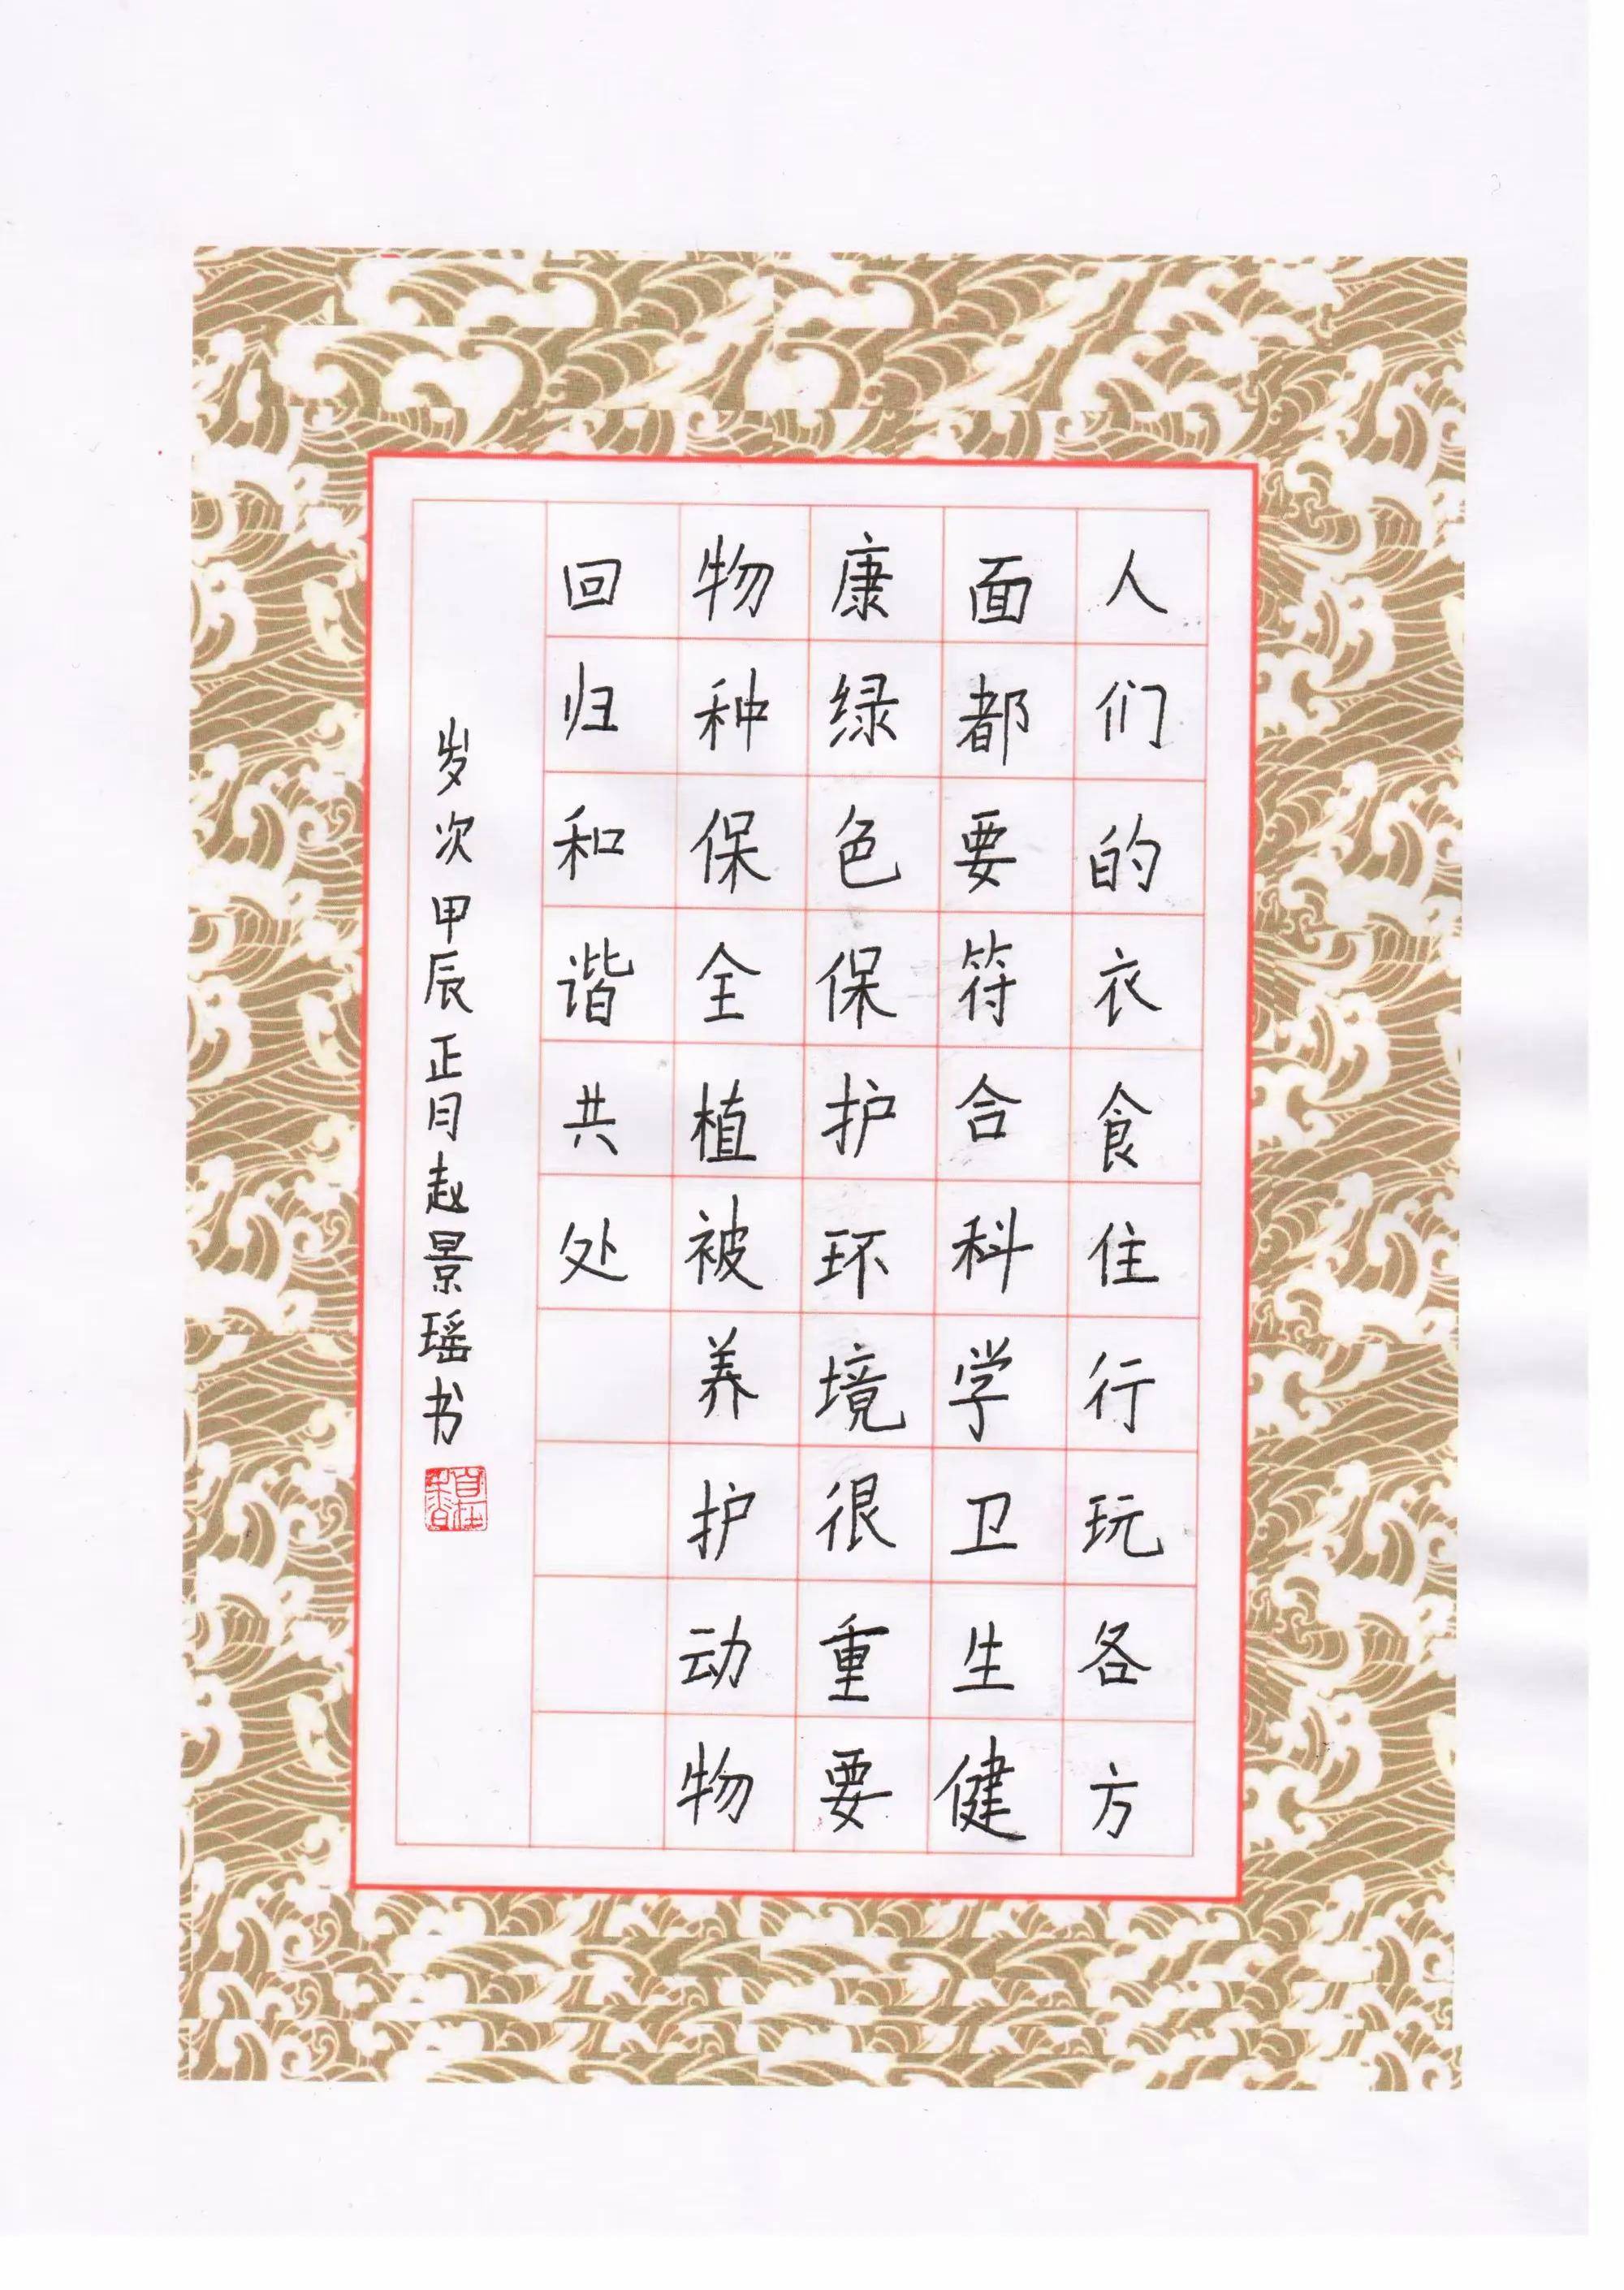 人们的衣食住行玩各方
面都要符合科学卫生健
康绿色保护环境很重要
物种保全植被养护动物
回归和谐共处
岁次甲辰正月赵景瑶书